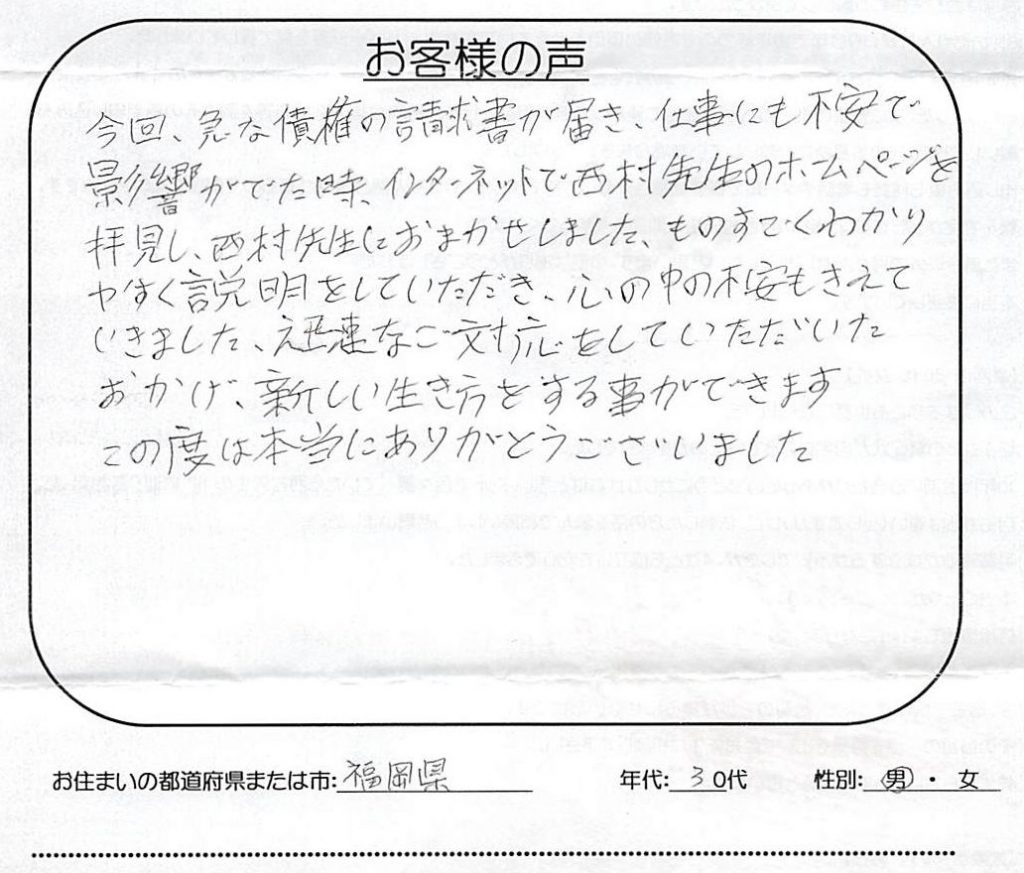 お客様の声
今回、急な債権の請求書が届き、仕事にも不安で
影響がでた時、インターネットで西村先生のホームページを
拝見し、西村先生におまかせしました、ものすごくわかり
やすく説明をしていただき、心の中の不安もきえて
いきました、迅速なご対応をしていただいた
おかげ、新しい生き方をする事ができます
この度は本当にありがとうございました
お住まいの都道府県または市:福岡県 年代:30代 性別:男・女